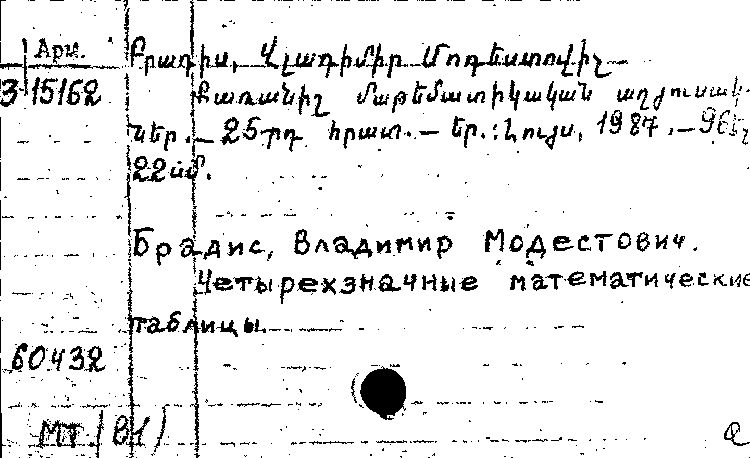 Арм. Բրադիս, Վլադիմիր Մոդեստովիչ
3-15162 Քառանիշ մաթեմատիկական աղյուսակ-
ներ. — 25-րդ հրատ. — Եր.: Լույս, 1987. — 96 էջ
22 սմ.
Брадис, Владимир Модестович.
Четырехзначные математические
таблицы.
60432
МТ (81)